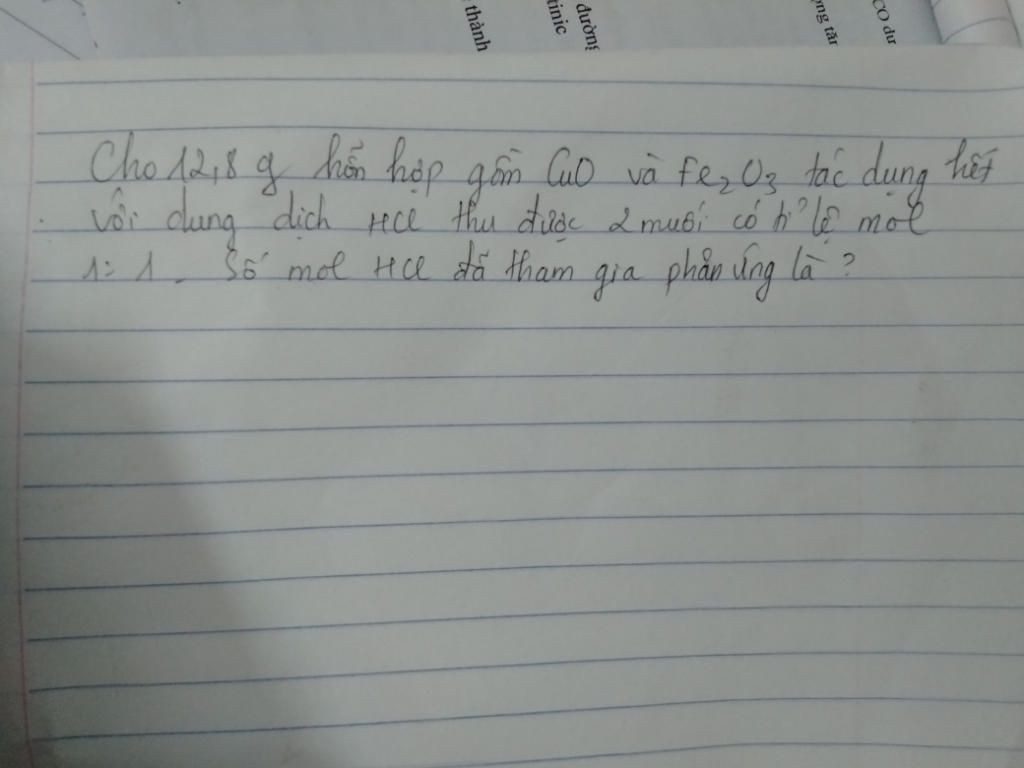 thành
tinic
đường
ợng tăn
CO dư
Cho 12,8 g hỗn hợp gồm CuO và Fe2O3 tác dụng hết
với dung dịch HCl thu được 2 muối có tỉ lệ mol
1:1. Số mol HCl đã tham gia phản ứng là?